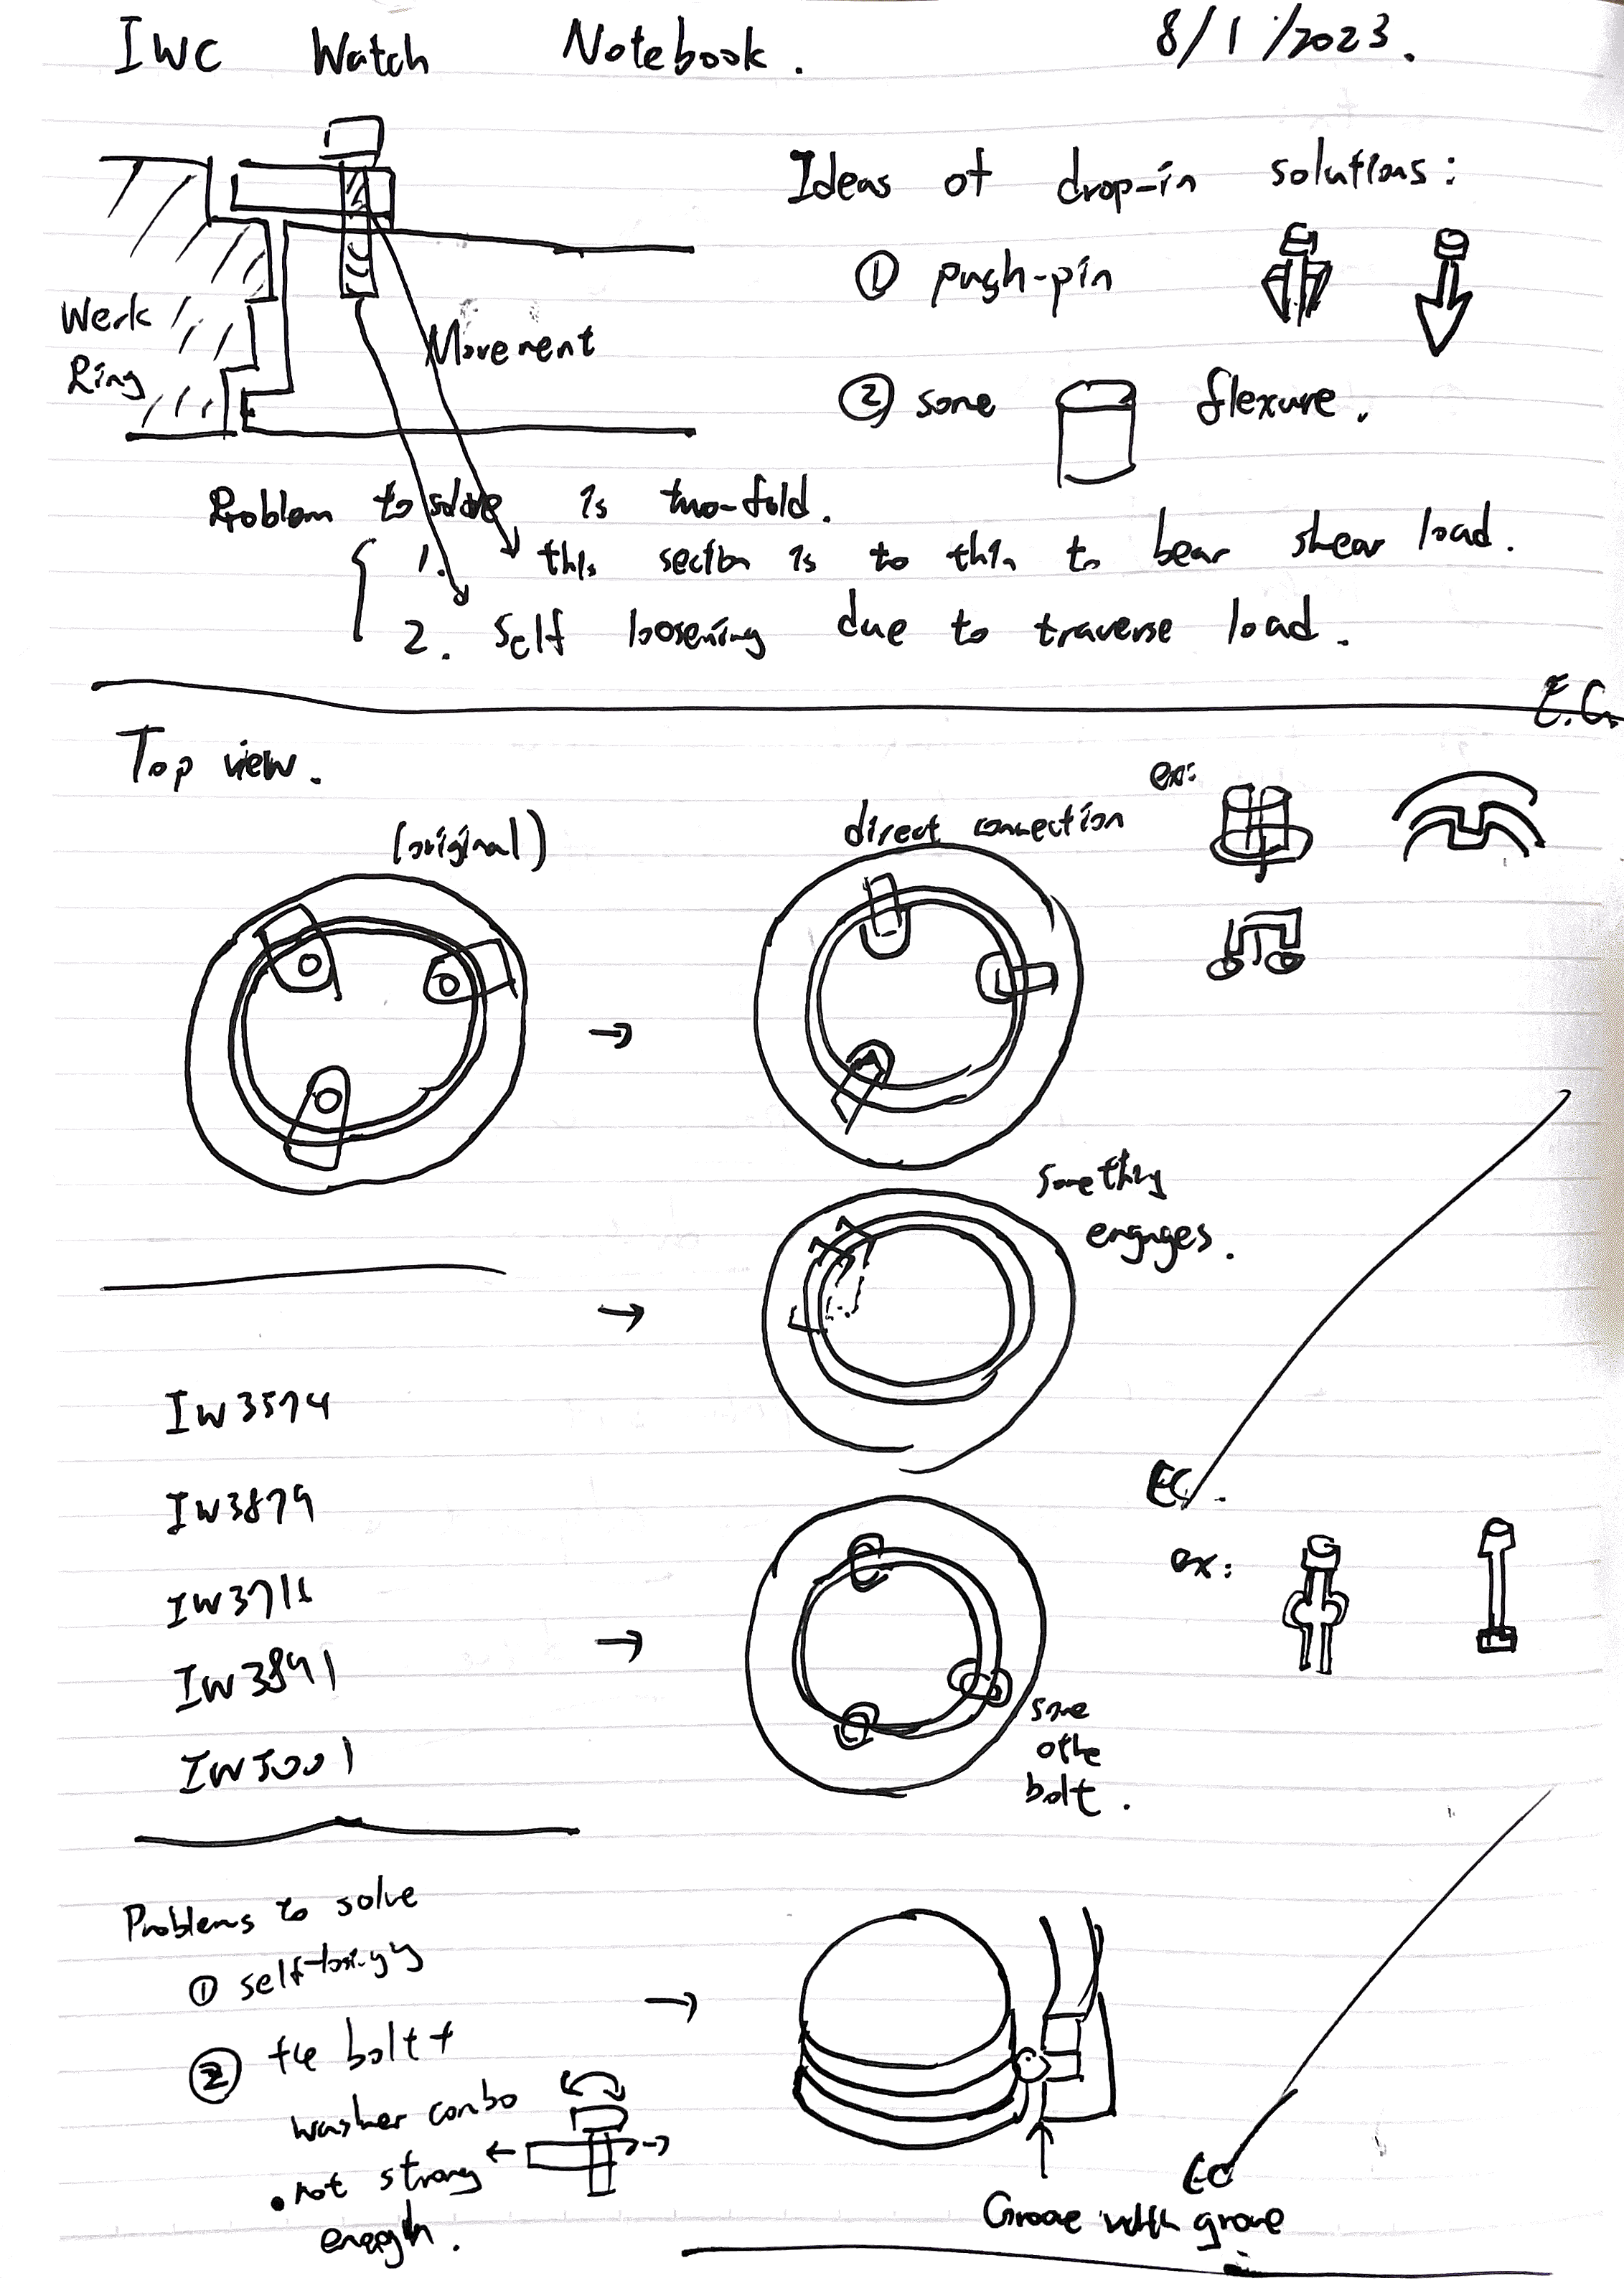 IWC Watch Notebook. 8/1/2023.
Ideas of drop-in solutions:
① push-pin
② some flexure.
Werk
Ring
Movement
Problem to solve is two-fold.
1. this section is to thin to bear shear load.
2. Self loosening due to traverse load.
E.C.
Top view.
(original)
direct connection
ex:
something
engages.
IW3574
IW3879
IW3716
IW3891
IW5001
EC.
ex:
some
othe
bolt.
Problems to solve
①
② the bolt +
washer combo
• not strong
enough.
Groove with grove
EC